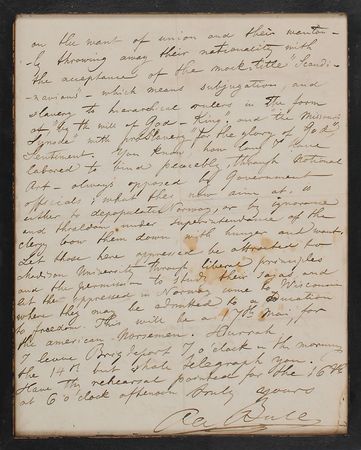 on the want of union and their wanton-
-ly throwing away their nationality with
the acceptance of the mock-title "Scandi-
-navians" - which means subjugation, and
slavery to hierarchical rulers in the form
as "by the will of God - King" and "the Missouri
Synode" with proslavery "for the glory of God"
Sentiment. You know how long I have
labored to bind peaceably, through National
Art - always opposed by Government
officials; what they now aim at, is
either to depopulate Norway, or by ignorance
and thraldom under superintendance of the
clergy bow them down with hunger and want.
Let those here oppressed be attracted to
Madison University through liberal principles
and the permission to study their Sagas, and
let the oppressed in Norway come to Wisconsin
where they may be admitted to education
to freedom. This will be a 17th Mai, for
the american Norsemen. Hurrah
I leave Bridgeport 7 o'clock in the morning
the 14th but shall telegraph you.
Have the rehearsal pointed for the 16th
at 6 o'clock afternoon Truly yours
Ole Bull